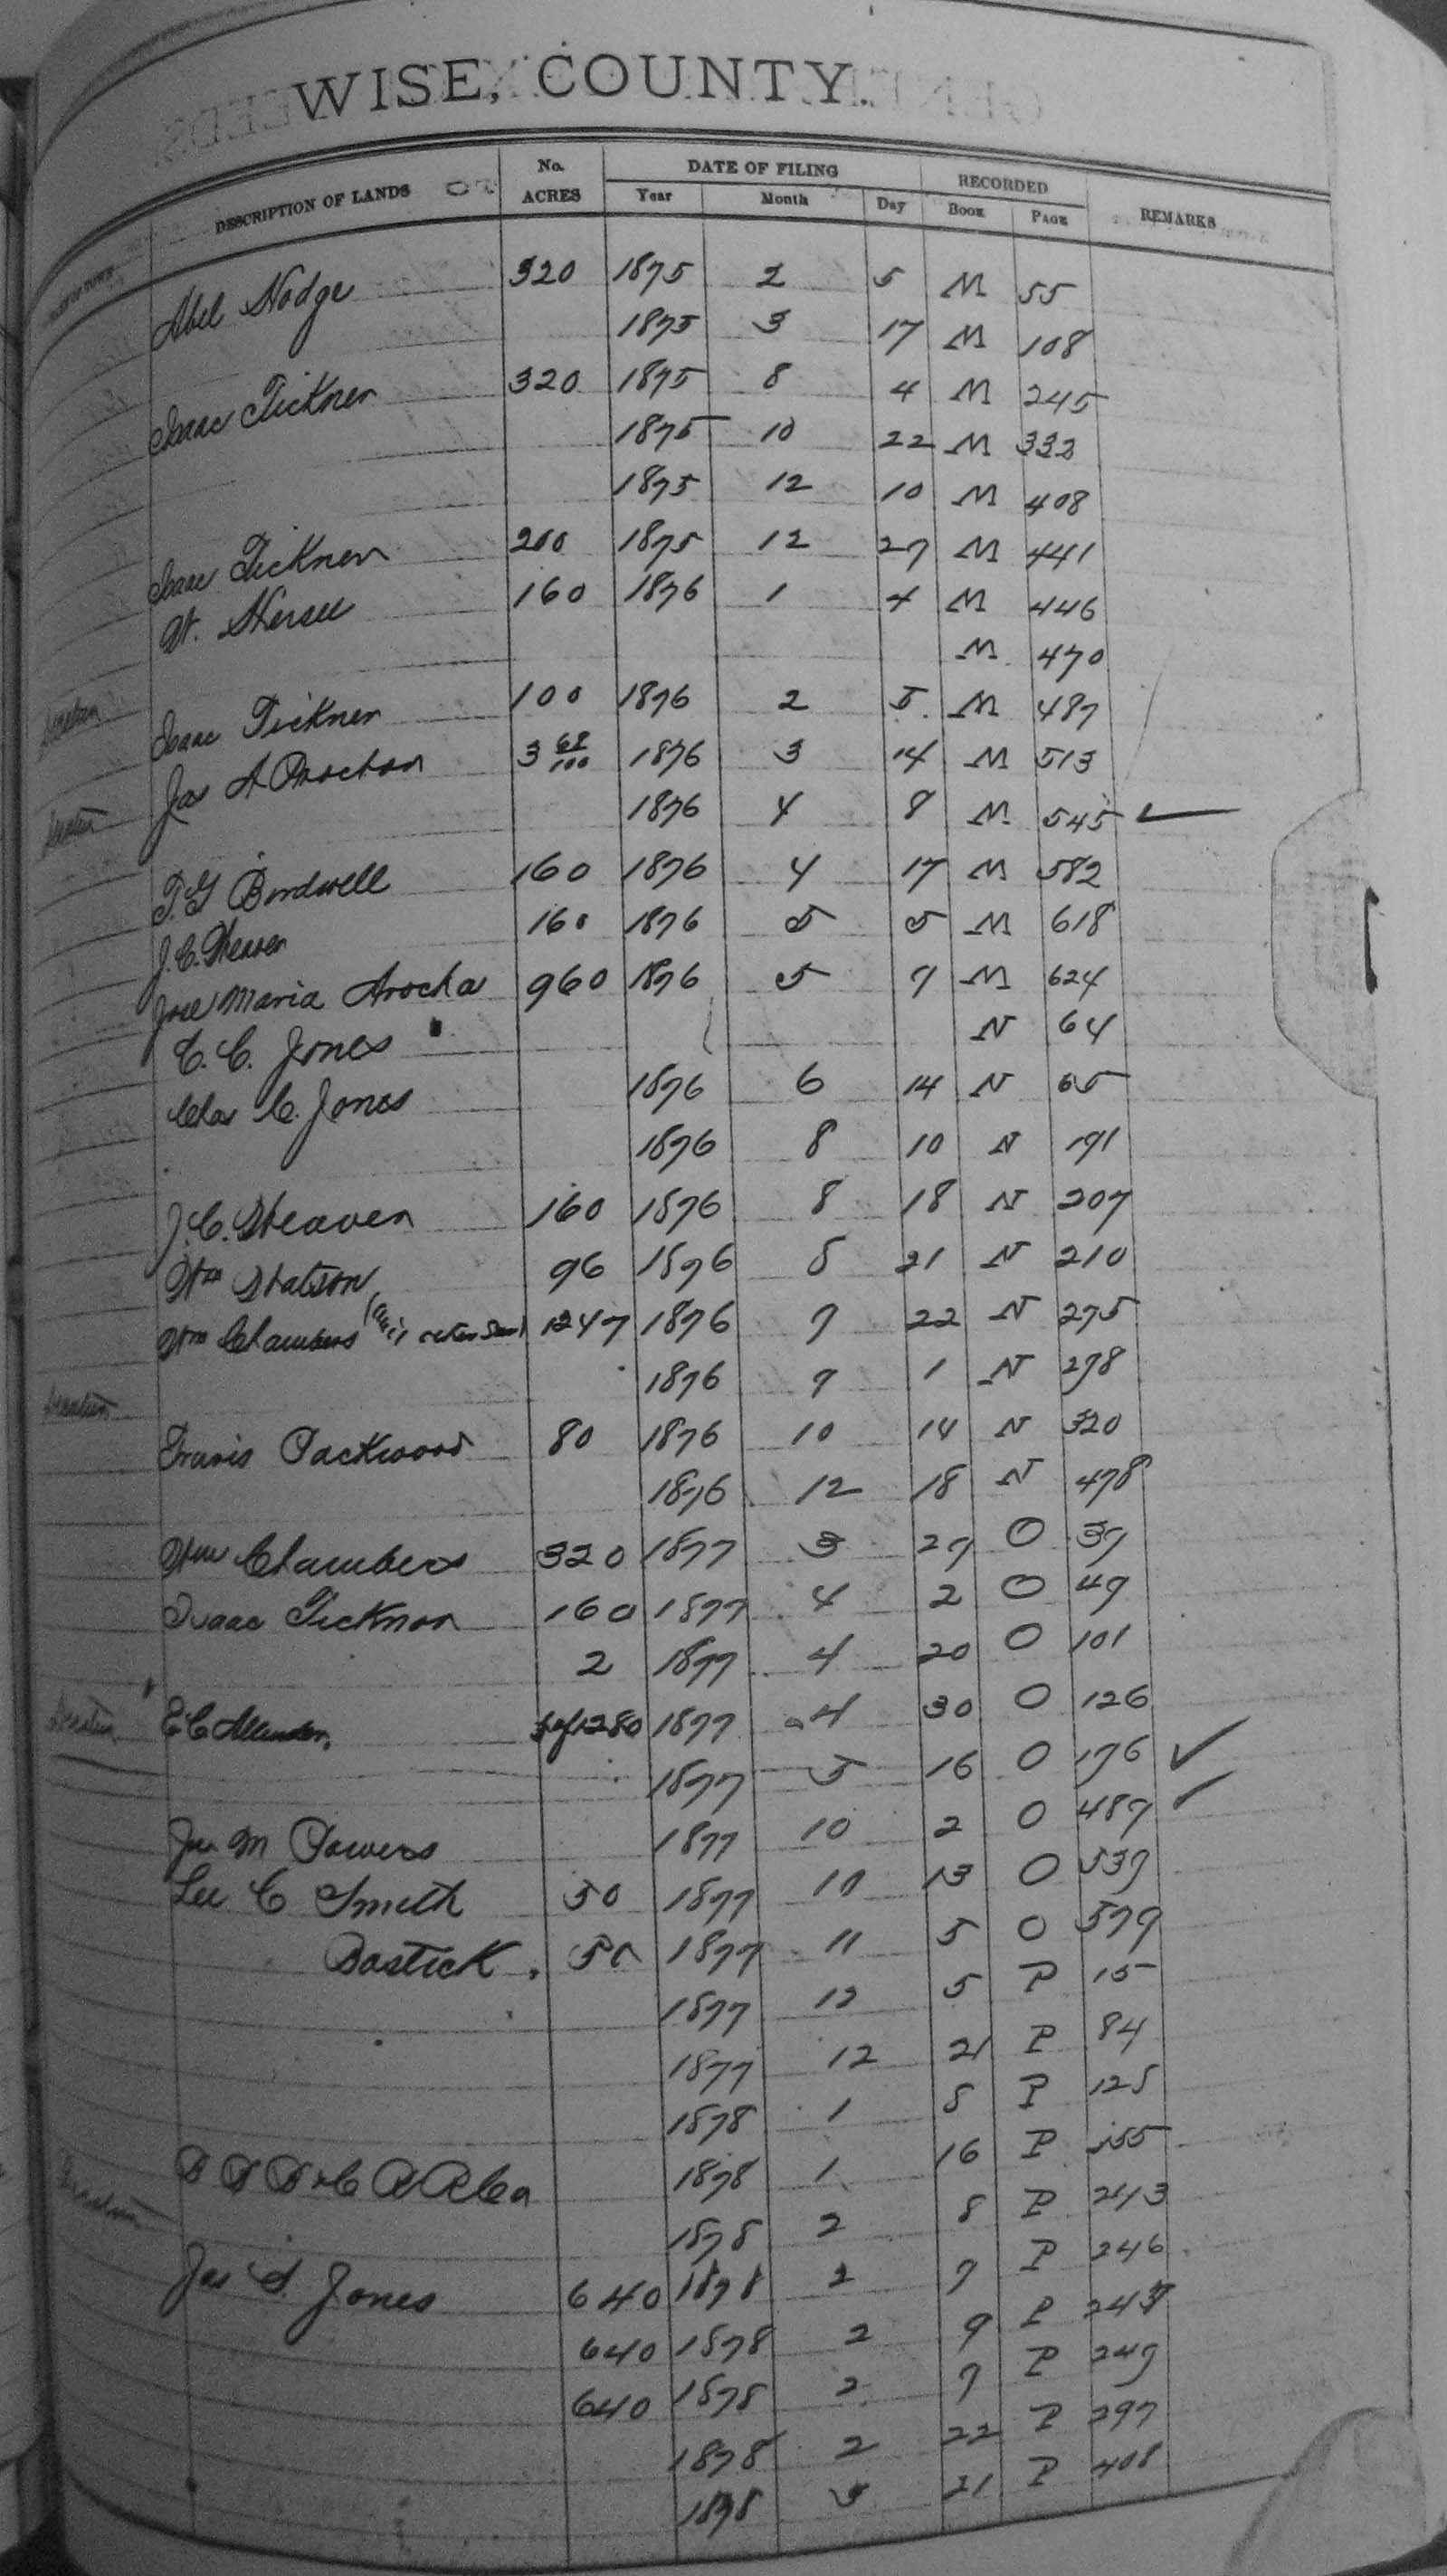 WISE, COUNTY.
DESCRIPTION OF LANDS No. ACRES DATE OF FILING Year Month Day RECORDED Book Page REMARKS
Abel Hodge 320 1875 2 5 M 55
1875 3 17 M 108
Isaac Tickner 320 1875 8 4 M 245
1875 10 22 M 332
1875 12 10 M 408
Isaac Tickner 200 1875 12 27 M 441
W. Hersee 160 1876 1 4 M 446
M 470
Decatur Isaac Tickner 100 1876 2 5 M 487
Jas A Proctor 3 68/100 1876 3 14 M 513
Decatur 1876 4 8 M 545 ✓
T.G Birdwell 160 1876 4 17 M 582
J.C. Weaver 160 1876 5 5 M 618
Jose Maria Arocha 960 1876 5 9 M 624
C. C. Jones N 64
Chas C. Jones 1876 6 14 N 65
1876 8 10 N 191
J.C. Weaver 160 1876 8 18 N 207
Wm Watson 96 1876 8 21 N 210
Wm Chambers 1247 1876 9 22 N 275
Decatur 1876 9 1 N 278
Travis Packwood 80 1876 10 14 N 320
1876 12 18 N 478
Wm Chambers 320 1877 3 29 O 39
Isaac Ticknor 160 1877 4 2 O 49
2 1877 4 20 O 101
Decatur E.C. Allender 1280 1877 4 30 O 126
1877 5 16 O 176 ✓
Jas M Powers 1877 10 2 O 489 ✓
Lee C Smith 50 1877 10 13 O 539
Bostick 50 1877 11 5 O 579
1877 12 5 P 15
1877 12 21 P 84
1878 1 8 P 125
B B B & C R R Co 1878 1 16 P 155
Decatur 1878 2 8 P 243
Jas S. Jones 640 1878 2 9 P 246
640 1878 2 9 P 247
640 1878 2 9 P 249
1878 2 22 P 297
1878 3 21 P 408